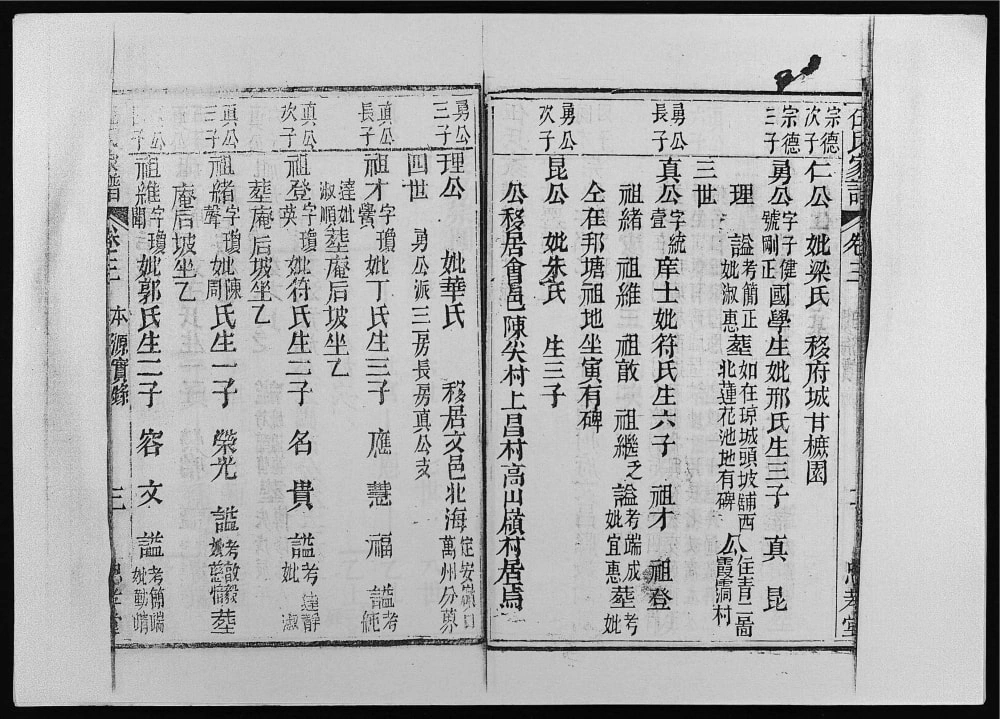 氏家譜 卷三 三 堂
宗德次子 仁公 妣梁氏 移府城甘樜園
宗德三子 勇公 字子健 號剛正 國學生妣邢氏生三子 真 昆
理 諡 考簡正 妣淑惠 塟 如在琼城三頭坡舖西 北蓮花池地有碑 公 住青二啚 霞洞村
三世
勇公長子 真公 字統 壹 庠士妣符氏生六子 祖才 祖登
祖緒 祖維 祖敢 祖繼 諡 考端成 妣宜惠 塟 考 妣
仝在邦塘祖地坐寅有碑
勇公次子 昆公 妣朱氏 生三子
公移居會邑陳尖村上昌村高山嶺村居焉
勇公三子 理公 妣華氏 移居文邑北海 定安嶺口 萬州分募
四世 勇公派三房長房真公支
真公長子 祖才 字瓊 妣丁氏生三子 應 慧 福 諡 考 純
達 妣 淑順 塟庵后坡坐乙
真公次子 祖登 字瓊 英 妣符氏生二子 名 貴 諡 考達靜 妣 淑
塟庵后坡坐乙
真公三子 祖緒 字瓊 聲 妣 陳 周 氏生一子 榮光 諡 考敢毅 妣慈 塟
庵后坡坐乙
祖維 字瓊 妣郭氏生二子 容 文 諡 考簡端 妣勤
家譜 卷三 本源實錄 三 堂